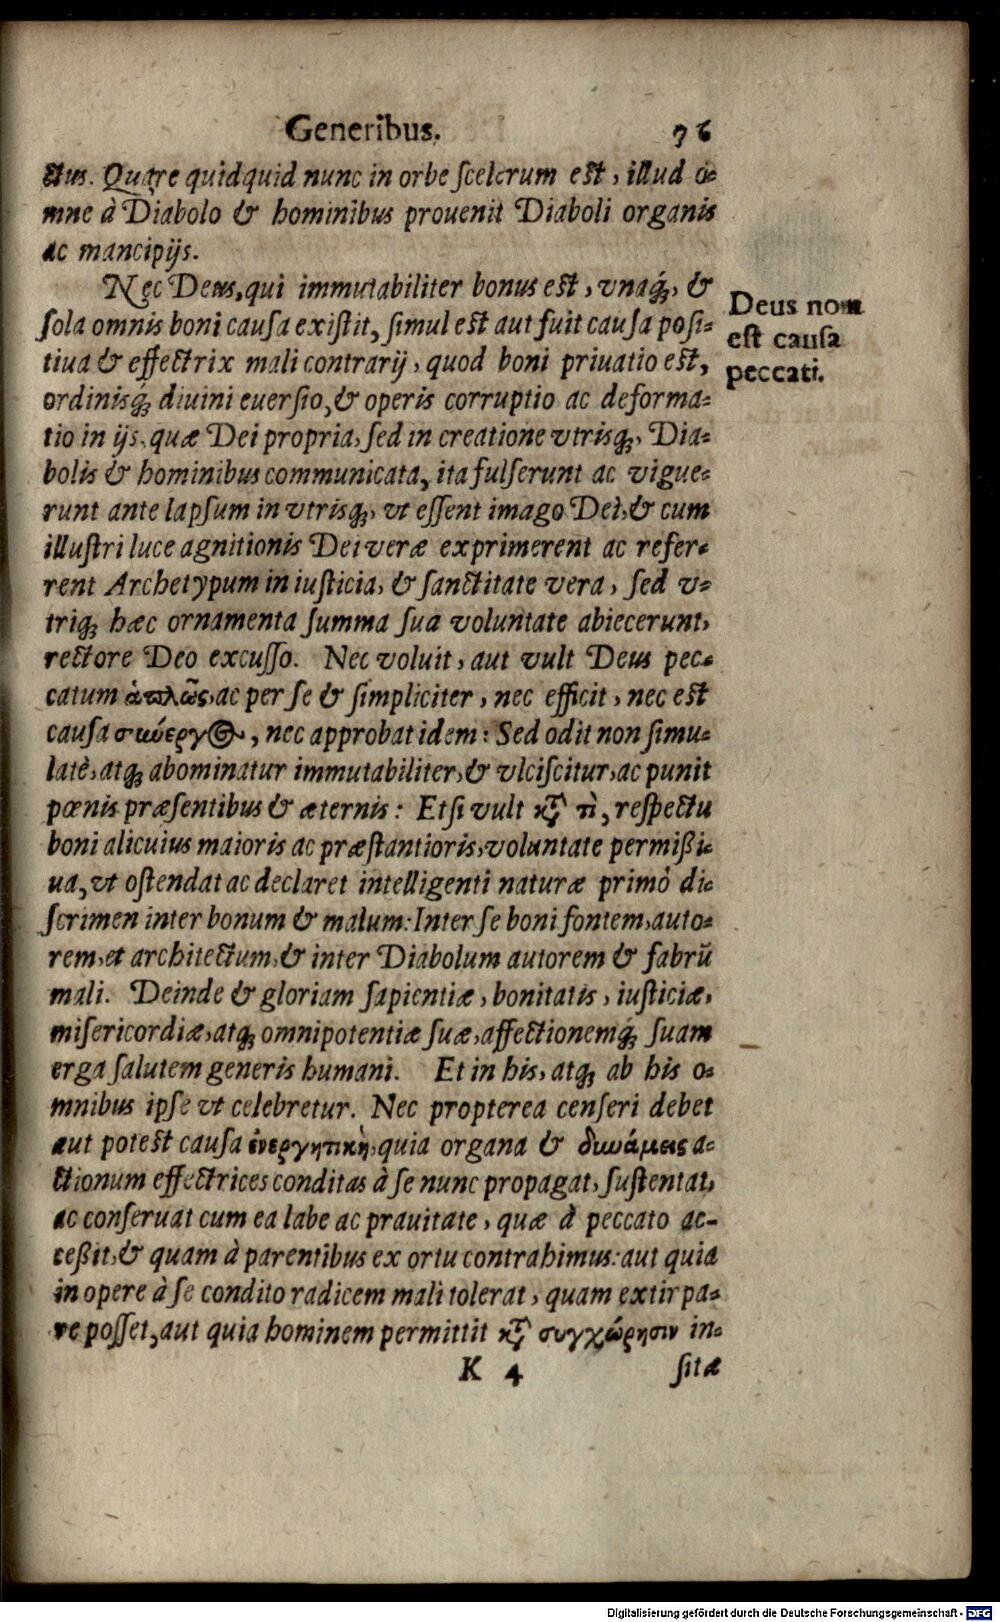 Generibus. 76
ctus. Quare quidquid nunc in orbe ſcelerum eſt, illud o-
mne à Diabolo & hominibus prouenit Diaboli organis
ac mancipijs.
Nec Deus, qui immutabiliter bonus eſt, vnaq́;, &
ſola omnis boni cauſa exiſtit, ſimul eſt aut fuit cauſa poſi-
tiua & effectrix mali contrarij, quod boni priuatio eſt,
ordinisq́; diuini euerſio, & operis corruptio ac deforma-
tio in ijs, quæ Dei propria, ſed in creatione vtrisq;, Dia-
bolis & hominibus communicata, ita fulſerunt ac vigue-
runt ante lapſum in vtrisq;, vt eſſent imago Dei, & cum
illuſtri luce agnitionis Dei veræ exprimerent ac refer-
rent Archetypum in iuſticia, & ſanctitate vera, ſed v-
triq; hæc ornamenta ſumma ſua voluntate abiecerunt,
rectore Deo excuſſo. Nec voluit, aut vult Deus pec-
catum ἁπλῶς, ac per ſe & ſimpliciter, nec efficit, nec eſt
cauſa συνεργὸς, nec approbat idem: Sed odit non ſimu-
latè, atq; abominatur immutabiliter, & vlciſcitur, ac punit
pœnis præſentibus & æternis: Etſi vult κτ̀ τὶ, reſpectu
boni alicuius maioris ac præſtantioris, voluntate permißi-
ua, vt oſtendat ac declaret intelligenti naturæ primò di-
ſcrimen inter bonum & malum: Inter ſe boni fontem, auto-
rem, et architectum, & inter Diabolum autorem & fabrū
mali. Deinde & gloriam ſapientiæ, bonitatis, iuſticiæ,
miſericordiæ, atq; omnipotentiæ ſuæ, affectionemq́; ſuam
erga ſalutem generis humani. Et in his, atq; ab his o-
mnibus ipſe vt celebretur. Nec propterea cenſeri debet
aut poteſt cauſa ἐνεργητικὴ, quia organa & δυνάμεις a-
ctionum effectrices conditas à ſe nunc propagat, ſuſtentat,
ac conſeruat cum ea labe ac prauitate, quæ à peccato ac-
ceßit, & quam à parentibus ex ortu contrahimus: aut quia
in opere à ſe condito radicem mali tolerat, quam extirpa-
re poſſet, aut quia hominem permittit κτ̀ συγχώρησιν in-
K 4 ſitæ
Deus non
eſt cauſa
peccati.
Digitalisierung gefördert durch die Deutsche Forschungsgemeinschaft - DFG